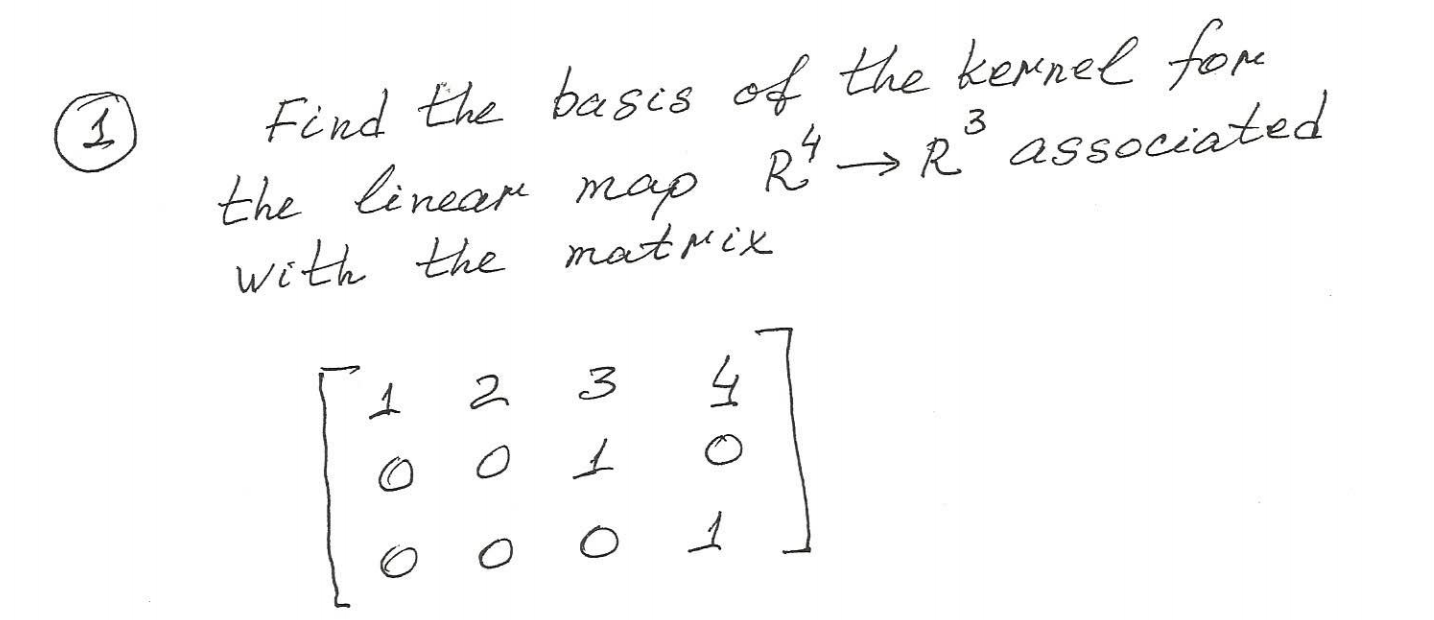 ① Find the basis of the kernel for
the linear map R⁴ → R³ associated
with the matrix
1 2 3 4
0 0 1 0
0 0 0 1